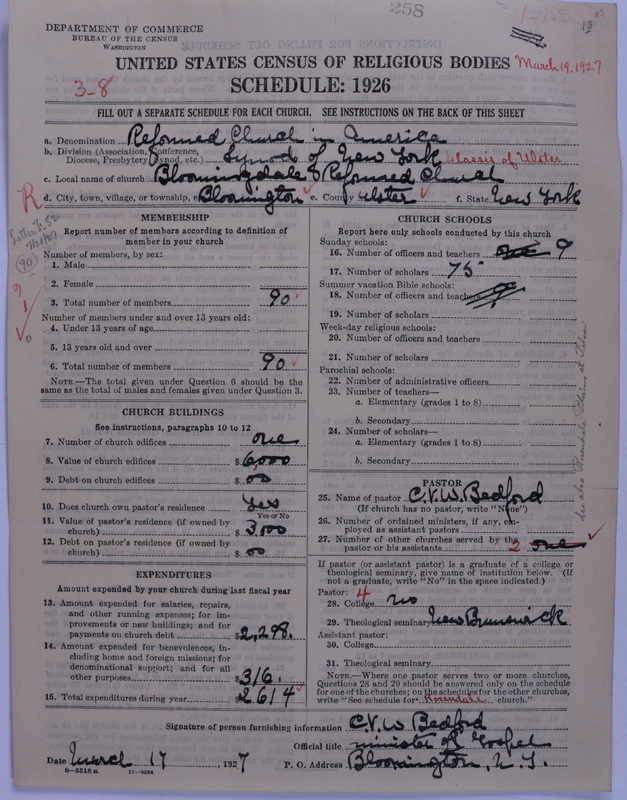 258
DEPARTMENT OF COMMERCE
BUREAU OF THE CENSUS
WASHINGTON
13
UNITED STATES CENSUS OF RELIGIOUS BODIES March 19, 1927
SCHEDULE: 1926
3-8
FILL OUT A SEPARATE SCHEDULE FOR EACH CHURCH. SEE INSTRUCTIONS ON THE BACK OF THIS SHEET
a. Denomination Reformed Church in America
b. Division (Association, Conference, Diocese, Presbytery, Synod, etc.) Synod of New York Classis of Ulster
c. Local name of church Bloomingdale Reformed Church
d. City, town, village, or township, Bloomington e. County Ulster f. State New York
R
90
MEMBERSHIP
Report number of members according to definition of
member in your church
Number of members, by sex:
1. Male
2. Female
3. Total number of members 90
Number of members under and over 13 years old:
4. Under 13 years of age
5. 13 years old and over
6. Total number of members 90
NOTE.—The total given under Question 6 should be the
same as the total of males and females given under Question 3.
CHURCH BUILDINGS
See instructions, paragraphs 10 to 12
7. Number of church edifices one
8. Value of church edifices $ 6,000
9. Debt on church edifices $ 00
10. Does church own pastor's residence yes
Yes or No
11. Value of pastor's residence (if owned by
church) $ 3,000
12. Debt on pastor's residence (if owned by
church) $ 00
EXPENDITURES
Amount expended by your church during last fiscal year
13. Amount expended for salaries, repairs,
and other running expenses; for im-
provements or new buildings; and for
payments on church debt $ 2,298.
14. Amount expended for benevolences, in-
cluding home and foreign missions; for
denominational support; and for all
other purposes $ 316.
15. Total expenditures during year $ 2614
CHURCH SCHOOLS
Report here only schools conducted by this church
Sunday schools:
16. Number of officers and teachers one 9
17. Number of scholars 75
Summer vacation Bible schools:
18. Number of officers and teachers 9
19. Number of scholars
Week-day religious schools:
20. Number of officers and teachers
21. Number of scholars
Parochial schools:
22. Number of administrative officers
23. Number of teachers—
a. Elementary (grades 1 to 8)
b. Secondary
24. Number of scholars—
a. Elementary (grades 1 to 8)
b. Secondary
PASTOR
25. Name of pastor C.V.W. Bedford
(If church has no pastor, write "None")
26. Number of ordained ministers, if any, em-
ployed as assistant pastors
27. Number of other churches served by the
pastor or his assistants 2 one
If pastor (or assistant pastor) is a graduate of a college or
theological seminary, give name of institution below. (If
not a graduate, write "No" in the space indicated.)
Pastor: 4
28. College no
29. Theological seminary New Brunswick
Assistant pastor:
30. College
31. Theological seminary
NOTE.—Where one pastor serves two or more churches,
Questions 28 and 29 should be answered only on the schedule
for one of the churches; on the schedules for the other churches,
write "See schedule for Rosendale church."
Signature of person furnishing information C.V.W Bedford
Official title minister of Gospel
Date March 17, 1927 P. O. Address Bloomington, N.Y.